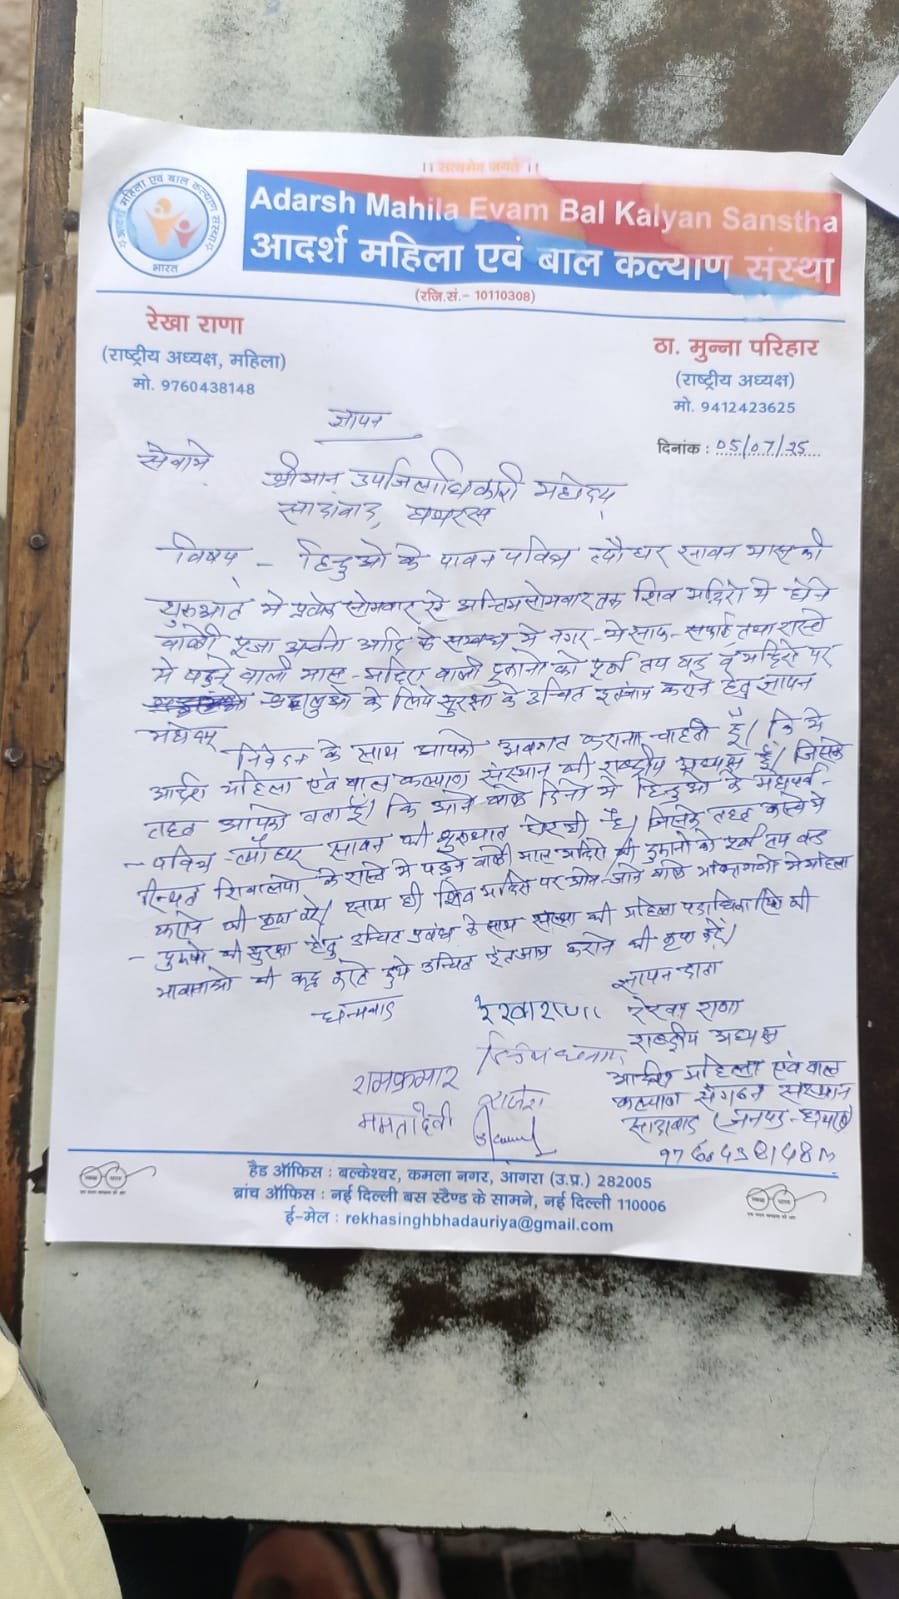 ।। सत्यमेव जयते ।।
आदर्श महिला एवं बाल कल्याण संस्था
भारत
Adarsh Mahila Evam Bal Kalyan Sanstha
आदर्श महिला एवं बाल कल्याण संस्था
(रजि.सं.- 10110308)
रेखा राणा
(राष्ट्रीय अध्यक्ष, महिला)
मो. 9760438148
ठा. मुन्ना परिहार
(राष्ट्रीय अध्यक्ष)
मो. 9412423625
दिनांक : 05/07/25
ज्ञापन
सेवामे
श्रीमान उपजिलाधिकारी महोदय
सादाबाद, हाथरस
विषय - हिन्दुओ के पावन पवित्र त्यौहार सावन मास की
शुरुआत मे प्रत्येक सोमवार से अन्तिम सोमवार तक शिव मंदिरो मे होने
वाली पूजा अर्चना आदि के सम्बन्ध मे नगर मे साफ-सफाई तथा रास्ते
मे पड़ने वाली मास-मदिरा वाली दुकानो को पूर्ण तय बन्द व मन्दिरो पर
श्रद्धालुओ के लिये सुरक्षा के उचित इन्तजाम कराने हेतु ज्ञापन
महोदय
निवेदन के साथ आपको अवगत कराना चाहती हूँ। कि मे
आदर्श महिला एवं बाल कल्याण संस्थान की राष्ट्रीय अध्यक्ष हूँ। जिसके
तहत आपको बता दूँ। कि आने वाले दिनो मे हिन्दुओ के महापर्व
- पवित्र त्यौहार सावन की शुरुआत हो रही है। जिसके तहत कस्बे मे
स्थित शिवालयो के रास्ते मे पड़ने वाली मास मदिरा की दुकानो को पूर्ण तय बन्द
कराने की कृपा करे। साथ ही शिव मन्दिरो पर आने-जाने वाले भक्तगणो मे महिला
- पुरुषो की सुरक्षा हेतु उचित प्रबंध के साथ संस्था की महिला पदाधिकारियो की
भावनाओ की कद्र करते हुये उचित इंतजाम कराने की कृपा करें।
धन्यवाद
ज्ञापन दाता
रेखा राणा
रेखा राणा
राष्ट्रीय अध्यक्ष
रामकुमार
राजेश
ममता देवी
आदर्श महिला एवं बाल
कल्याण संगठन संस्थान
सादाबाद (जनपद-हाथरस)
9760438148
हैड ऑफिस : बल्केश्वर, कमला नगर, आगरा (उ.प्र.) 282005
ब्रांच ऑफिस : नई दिल्ली बस स्टैण्ड के सामने, नई दिल्ली 110006
ई-मेल : rekhasinghbhadauriya@gmail.com